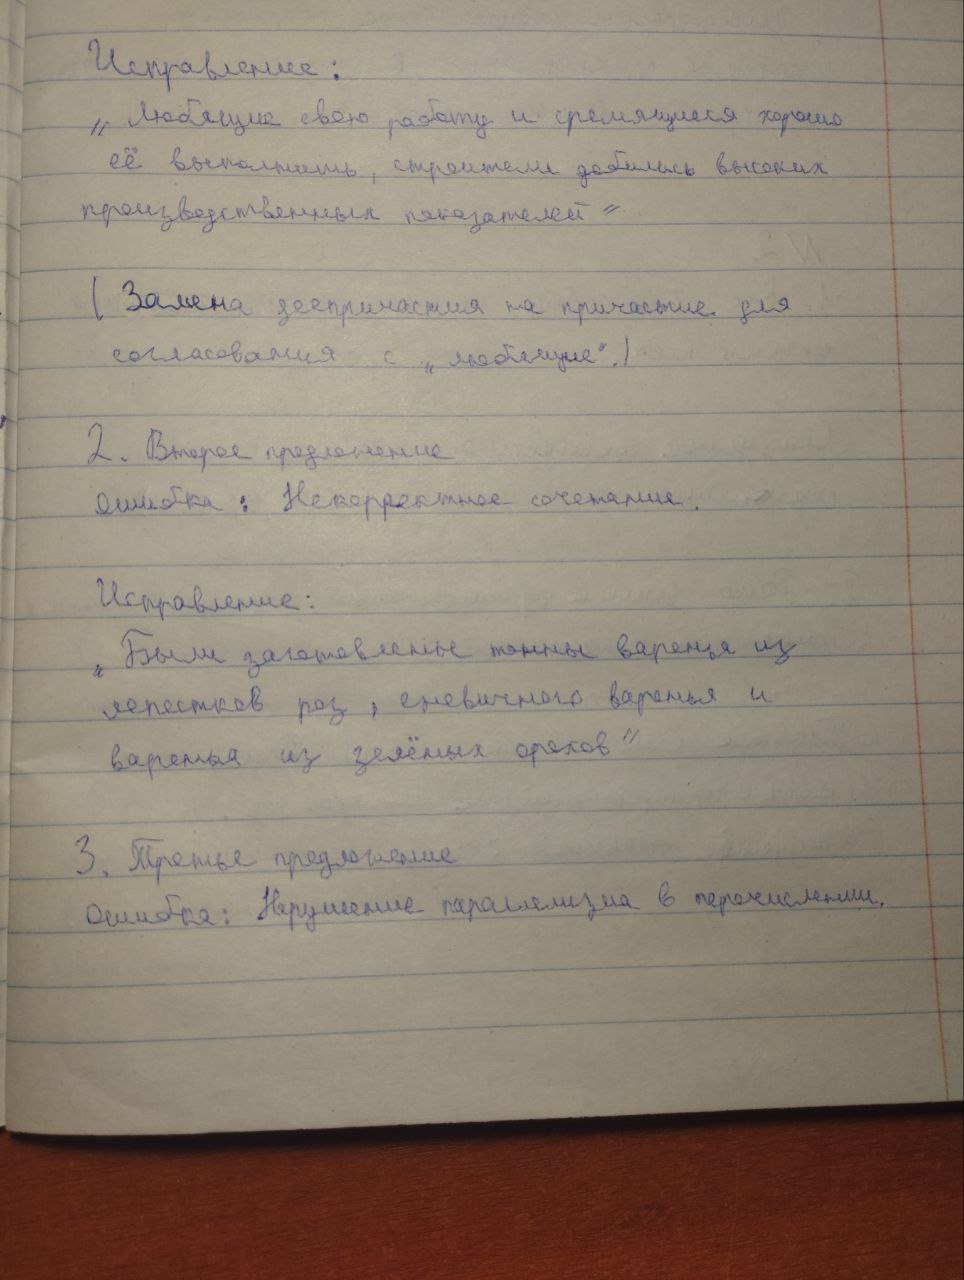 Исправление:
„Любящие свою работу и стремящиеся хорошо
её выполнить, строители добились высоких
производственных показателей"
(Замена деепричастия на причастие для
согласования с „любящие".)
2. Второе предложение
Ошибка: Некорректное сочетание.
Исправление:
„Были заготовлены тонны варенья из
лепестков роз, ежевичного варенья и
варенья из зелёных орехов"
3. Третье предложение
Ошибка: Нарушение параллелизма в перечислении.